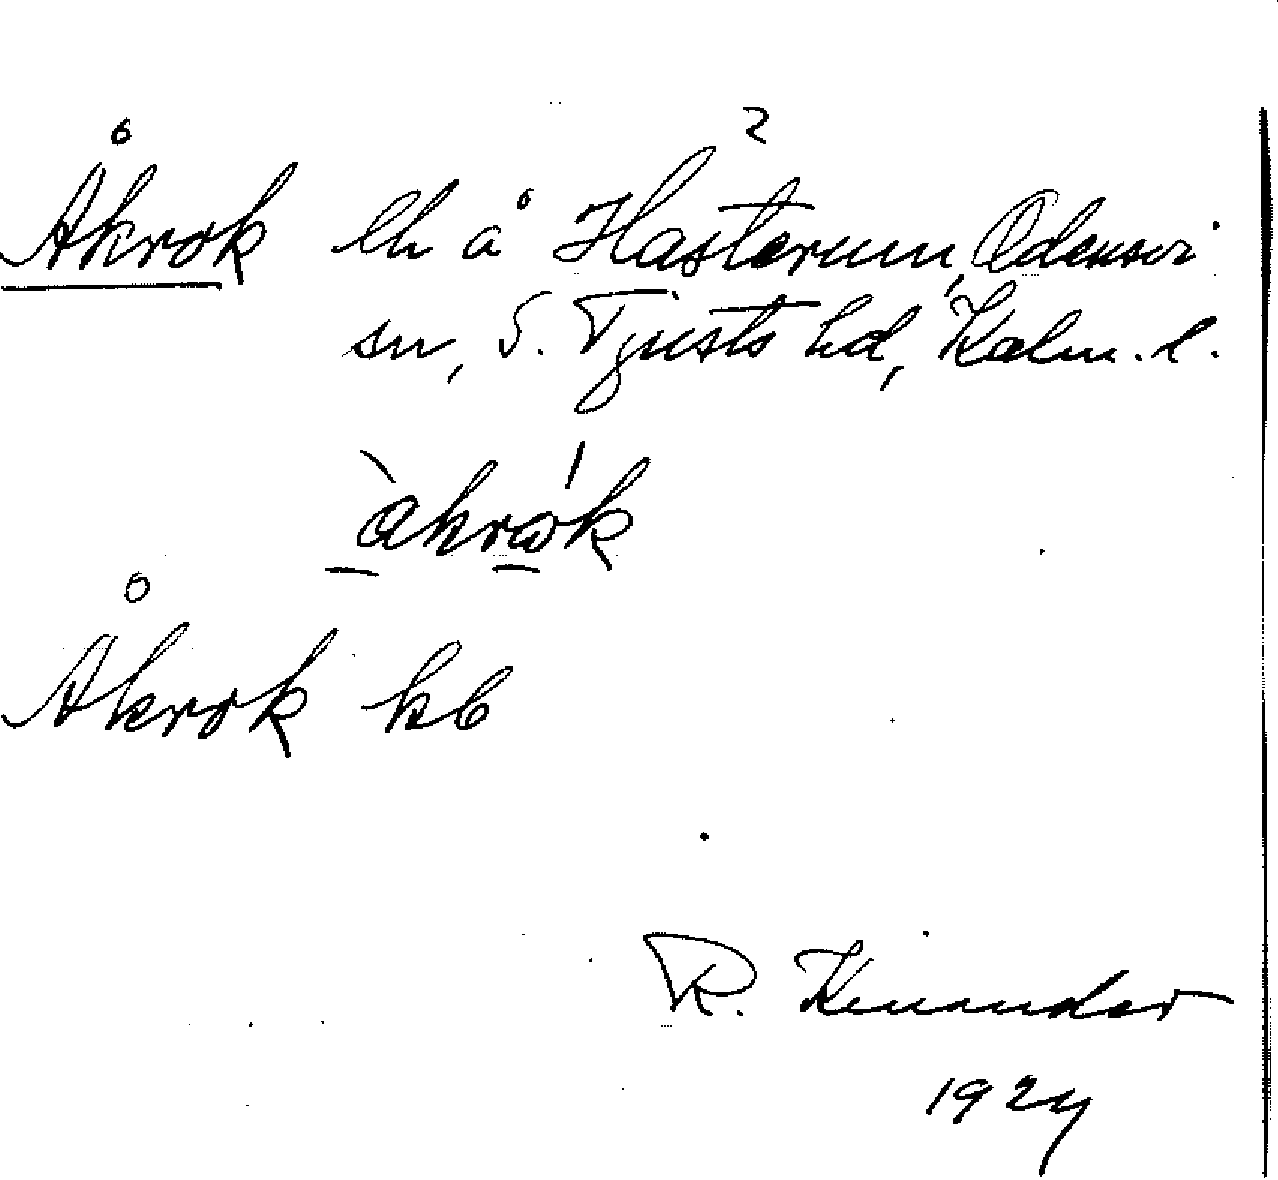 Åkrok lh å Hasterum², Odensvi
sn, S. Tjusts hd, Kalm. l.
åkrok
Åkrok kb
R. Kinander
1924